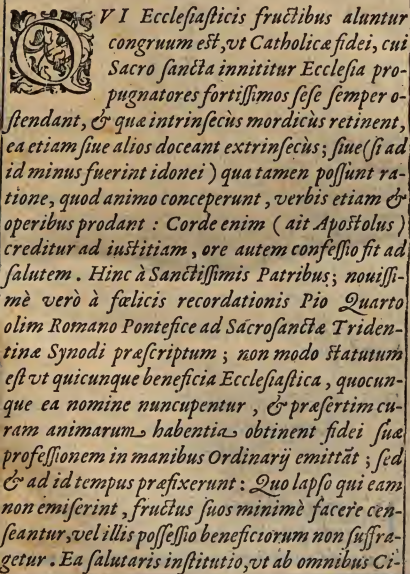 QVI Ecclesiasticis fructibus aluntur
congruum est, vt Catholicæ fidei, cui
Sacro sancta innititur Ecclesia pro-
pugnatores fortissimos sese semper o-
stendant, & quæ intrinsecùs mordicùs retinent,
ea etiam siue alios doceant extrinsecùs; siue (si ad
id minus fuerint idonei) qua tamen possunt ra-
tione, quod animo conceperunt, verbis etiam &
operibus prodant: Corde enim (ait Apostolus)
creditur ad iustitiam, ore autem confessio fit ad
salutem. Hinc à Sanctissimis Patribus; nouissi-
mè verò à fœlicis recordationis Pio Quarto
olim Romano Pontefice ad Sacrosanctæ Triden-
tinæ Synodi præscriptum; non modo statutum
est vt quicunque beneficia Ecclesiastica, quocun-
que ea nomine nuncupentur, & præsertim cu-
ram animarum habentia obtinent fidei suæ
professionem in manibus Ordinarij emittãt; sed
& ad id tempus præfixerunt: Quo lapso qui eam
non emiserint, fructus suos minimè facere cen-
seantur, vel illis possessio beneficiorum non suffra-
getur. Ea salutaris institutio, vt ab omnibus Ci-